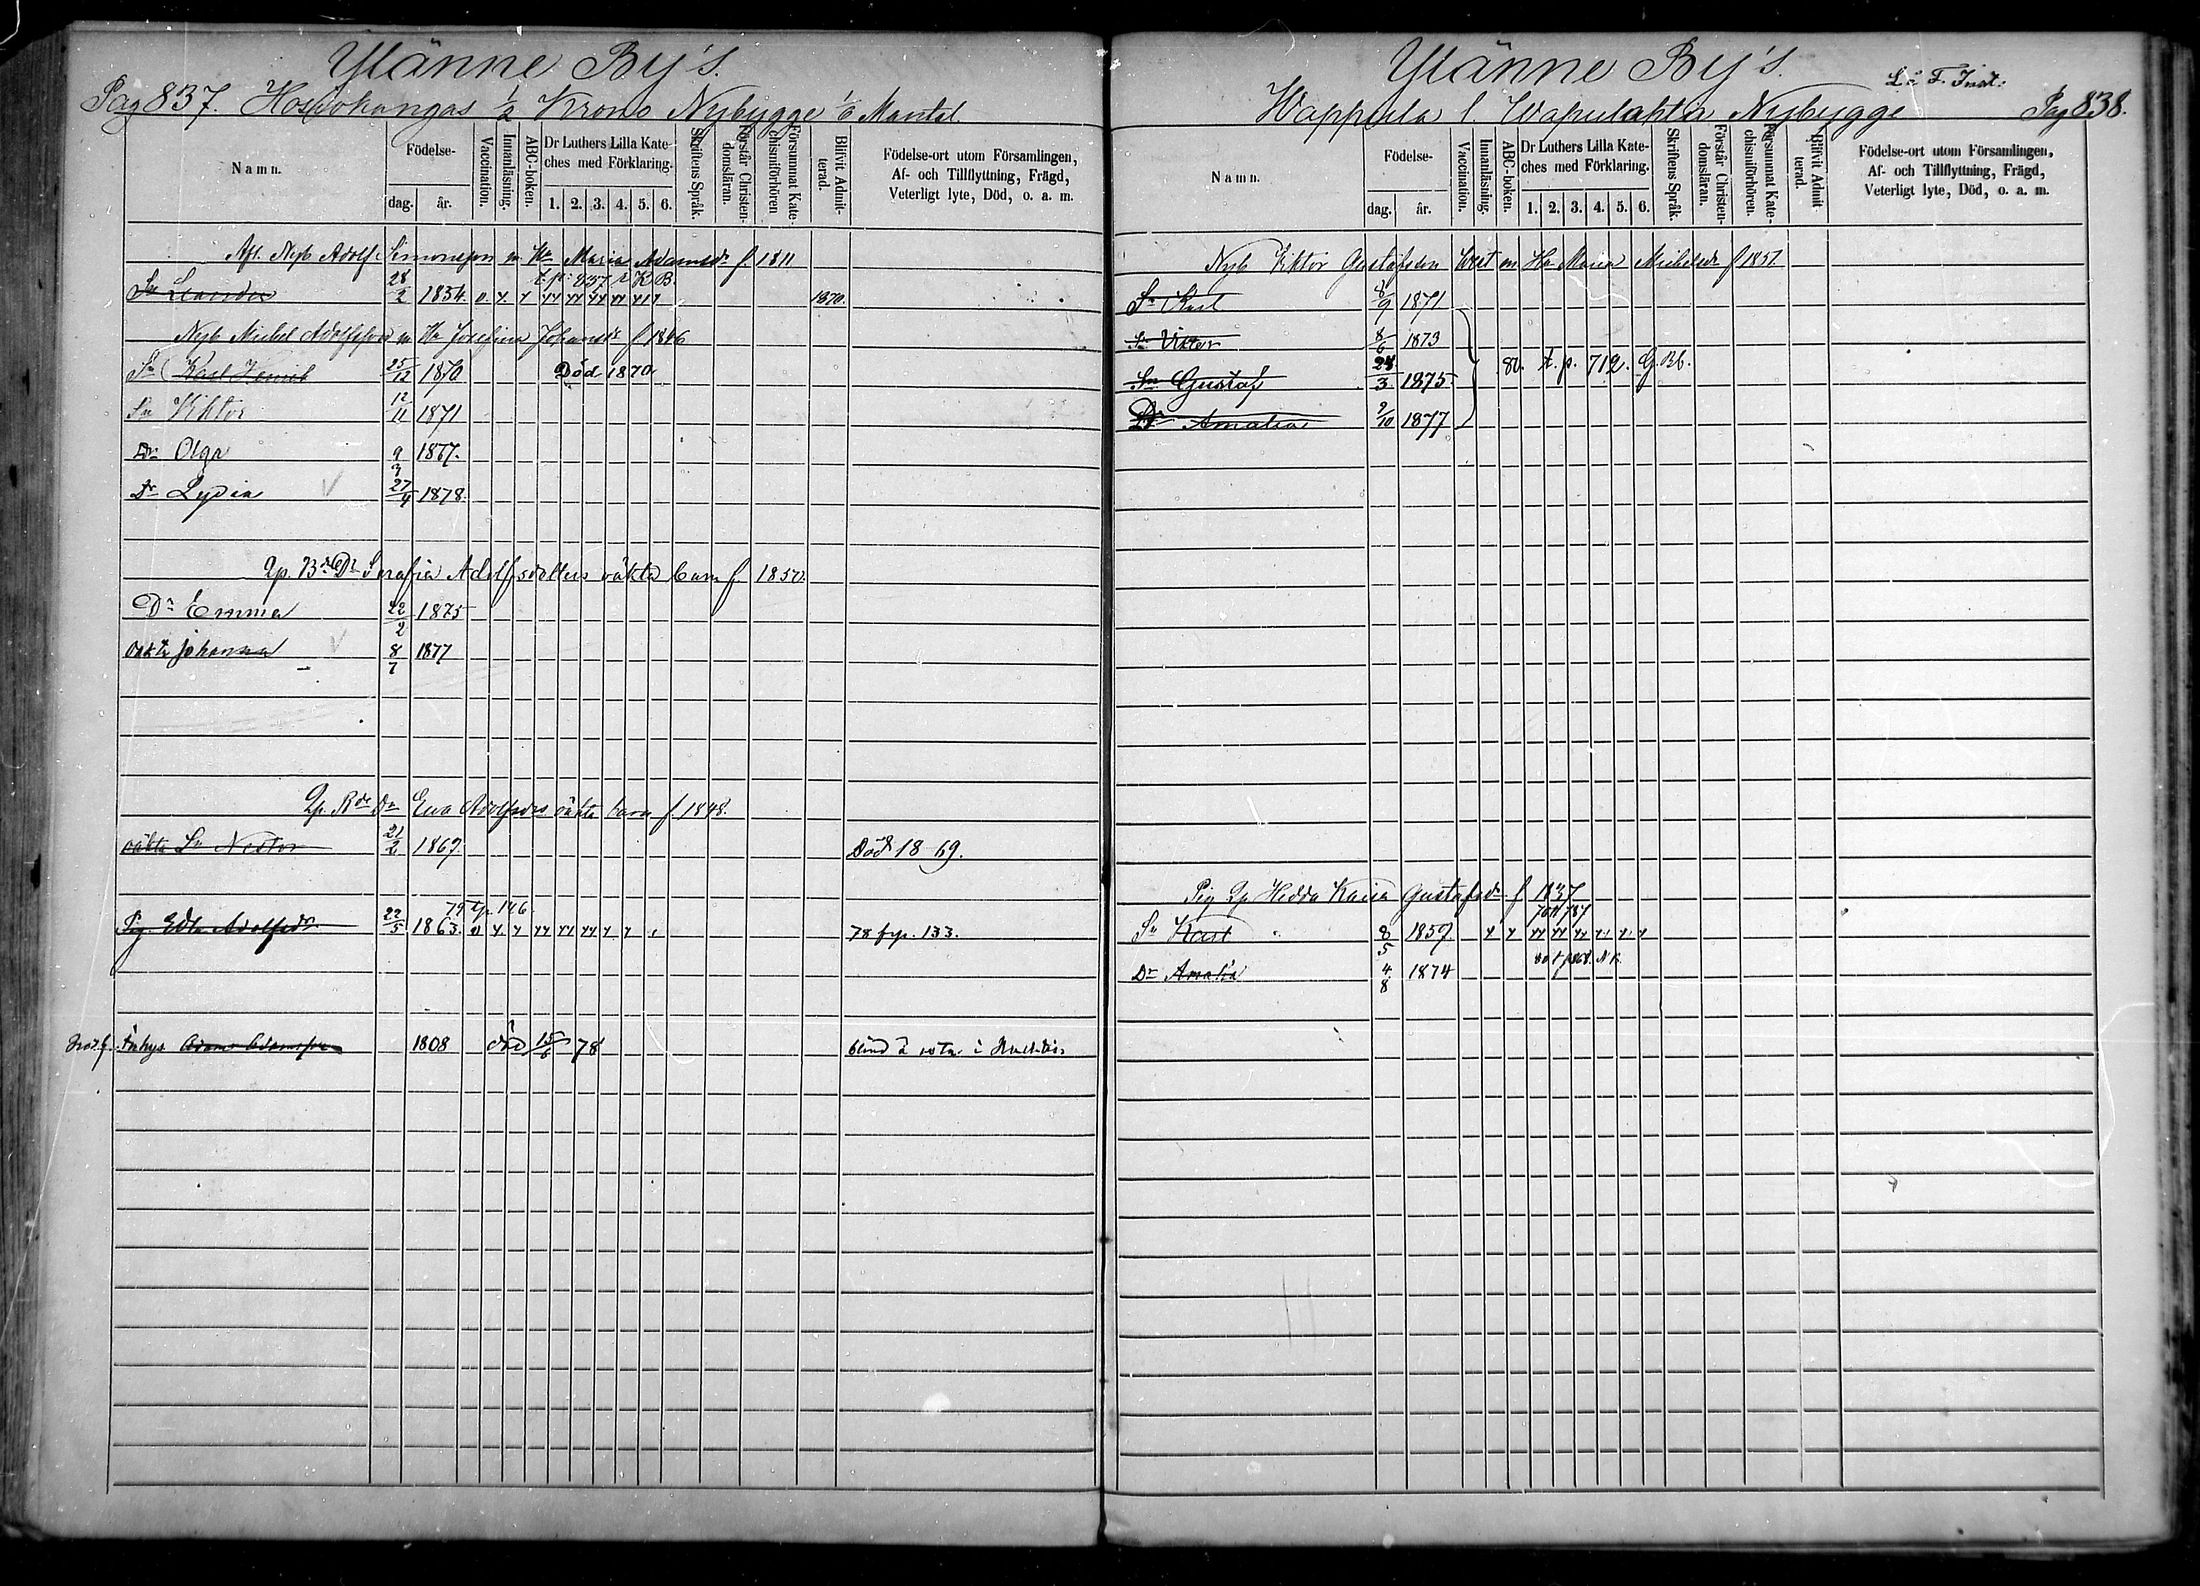 Ylänne By's.
Pag 837. Hossokangas 1/2 Krono Nybygge 1/6 Mantal
Namn.
Födelse-
dag.
år.
Vaccination.
Innanläsning.
ABC-boken.
Dr Luthers Lilla Kate-
ches med Förklaring.
1. 2. 3. 4. 5. 6.
Skriftens Språk.
Förstår Christen-
domsläran.
Försummat Kate-
chismiförhören
Blifvit Admit-
terad.
Födelse-ort utom Församlingen,
Af- och Tillflyttning, Frägd,
Veterligt lyte, Död, o. a. m.
Afl. Nyb Adolf Simonsson m Ha Maria Adamsdr f. 1811
t. p. 857 i K B.
Sn Leander 28/2 1854. 1870.
Nyb Michel Adolfsson m Ha Josefina Johansdr f 1846
Sn Karl 25/12 1870. Död 1870.
Sn Viktor 12/11 1871
Dr Olga 9/3 1877.
Dr Lydia 27/4 1878.
Serafia Adolfsdotters oäkta barn f. 1850.
Dr Emma 22/2 1875
oäkta Johanna 8/7 1877
Dr Eva Adolfsdrs oäkta barn f. 1848.
oäkta Sn Nestor 21/2 1869. Död 18 69.
79 tp. 146.
Pig. Edla Adolfsdr. 22/5 1863. 78 frp. 133.
Adam Adamsson 1808 död 15/6 78 blind
Ylänne By's.
L: F. Inst.
Wappula l. Wapulahta Nybygge Pag 838.
Namn.
Födelse-
dag.
år.
Vaccination.
Innanläsning.
ABC-boken.
Dr Luthers Lilla Kate-
ches med Förklaring.
1. 2. 3. 4. 5. 6.
Skriftens Språk.
Förstår Christen-
domsläran.
Försummat Kate-
chismiförhören.
Blifvit Admit-
terad.
Födelse-ort utom Församlingen,
Af- och Tillflyttning, Frägd,
Veterligt lyte, Död, o. a. m.
Nyb Viktor Gustafsson m Ha Maria Michelsdr f 1851.
Sn Karl 1871
Sn Victor 8/6 1873
80. t. p. 712. G. Bb.
Sn Gustaf 1875
Dr Amalia 9/10 1877
Pig Hedda Kaisa Gustafsdr f 1837
Sn Karl 8/5 1859
Dr Amalia 4/8 1874